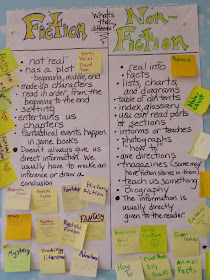 Fiction
What's the difference?
Non-
Fiction
• not real
• has a plot
beginning, middle, end
• made-up characters
• read in order, from the
beginning to the end
• setting
• entertains us
• chapters
• fantastical events happen
in some books
• Doesn't always give us
direct information. We
usually have to make an
inference or draw a
conclusion
• real info
• facts
• lists, charts,
and diagrams
• table of contents
• index, glossary
• you can read parts
or sections
• informs or teaches
• photographs
• "how to"
• give directions
• magazines (some may
have fiction stories in them)
• teach us something
• biography
• The information is
usually directly
given to the reader.
Space
Fantasy
History
Fiction
Realistic
Fiction
FANTASY
Mystery
Traditional
Literature
Adventure
How to
Animal
Facts